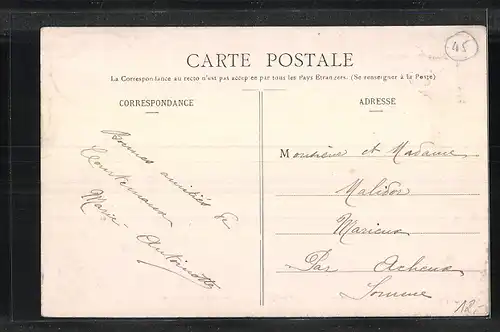 CARTE POSTALE
45
La Correspondance au recto n'est pas acceptée par tous les Pays Etrangers. (Se renseigner à la Poste)
CORRESPONDANCE
Bonnes amitiés de
Marie-Antoinette
ADRESSE
Monsieur et Madame
Malidor
Marieux
Par Acheux
Somme
18,-